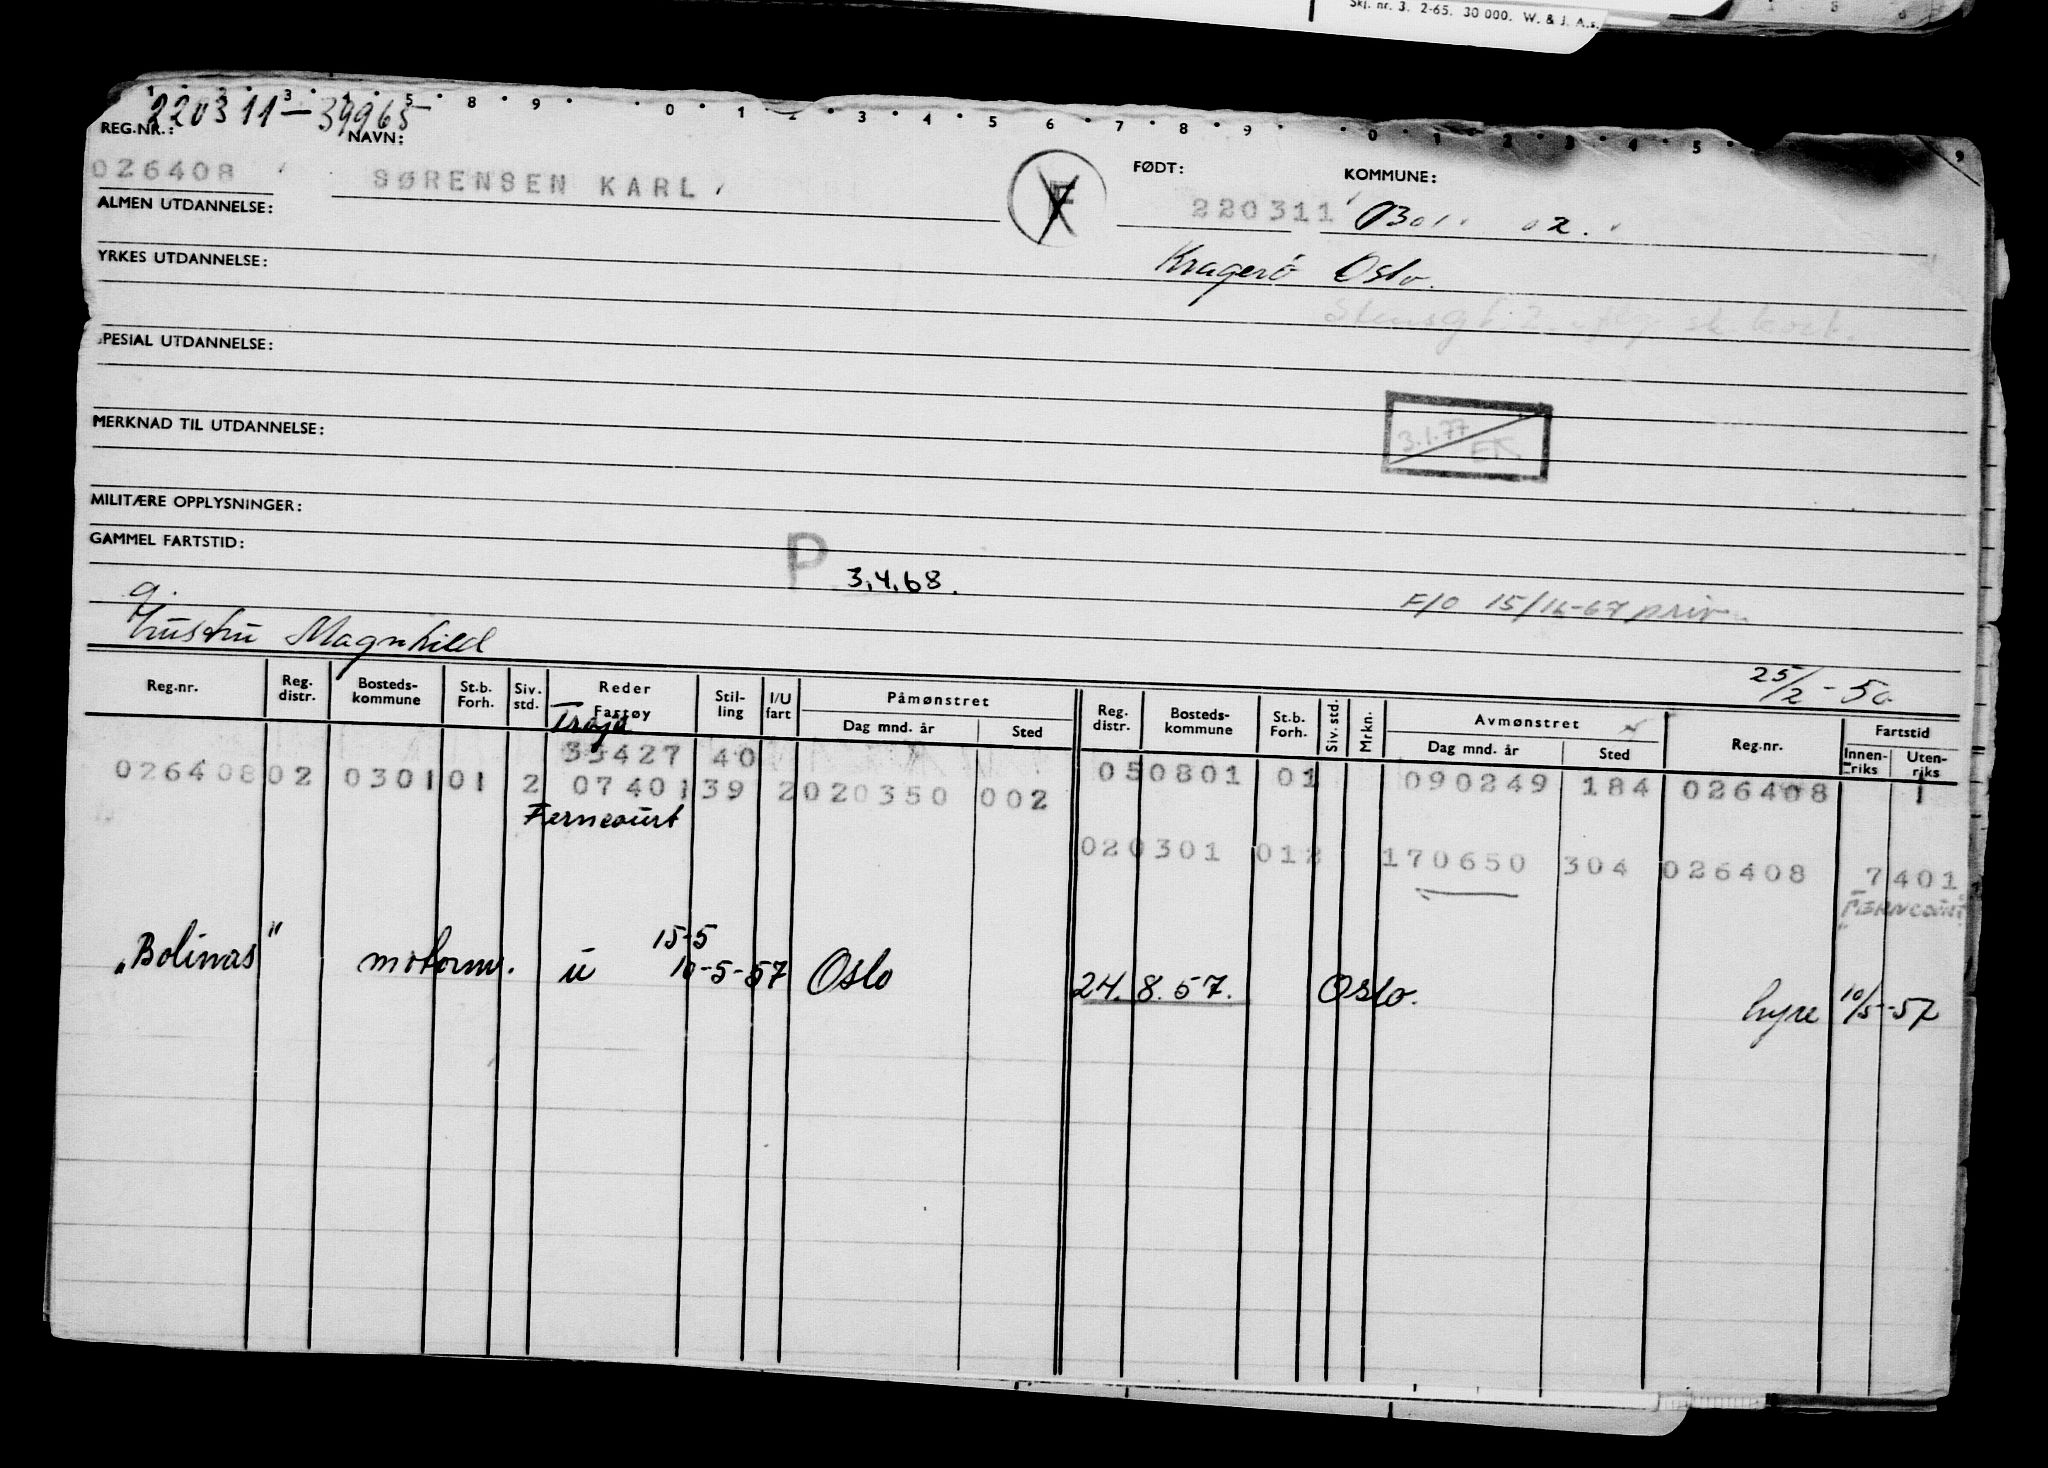 Skj. nr. 3. 2-65. 30 000. W. & J. A.s.
220311-39965
REG.NR.: NAVN: FØDT: KOMMUNE:
026408 SØRENSEN KARL F 220311 0301 02.
ALMEN UTDANNELSE:
Kragerö Oslo.
YRKES UTDANNELSE:
SPESIAL UTDANNELSE:
3.1.77
MERKNAD TIL UTDANNELSE:
MILITÆRE OPPLYSNINGER:
GAMMEL FARTSTID:
P 3.4.68.
F/O 15/16-67 priv
g.
Hustru Magnhild
25/2-50
Reg.nr. Reg. distr. Bosteds-kommune St.b. Forh. Siv. std. Reder Fartøy Stil-ling I/U fart Påmønstret Dag mnd. år Sted Reg. distr. Bosteds-kommune St.b. Forh. Siv. std. Mrkn. Avmønstret Dag mnd. år Sted Reg.nr. Fartstid Innen-riks Uten-riks
Troja
33427 40 050801 01 090249 184 026408 1
026408 02 0301 01 2 07401 39 2 020350 002
Ferncourt
020301 012 170650 304 026408 7401
FERNCOURT
„Bolinas" motorm. u 15-5 10-5-57 Oslo 24.8.57. Oslo. hyre 10/5-57